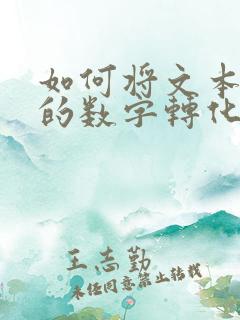 如何将文本
的数字轉化
王志勤
未经同意禁止转载